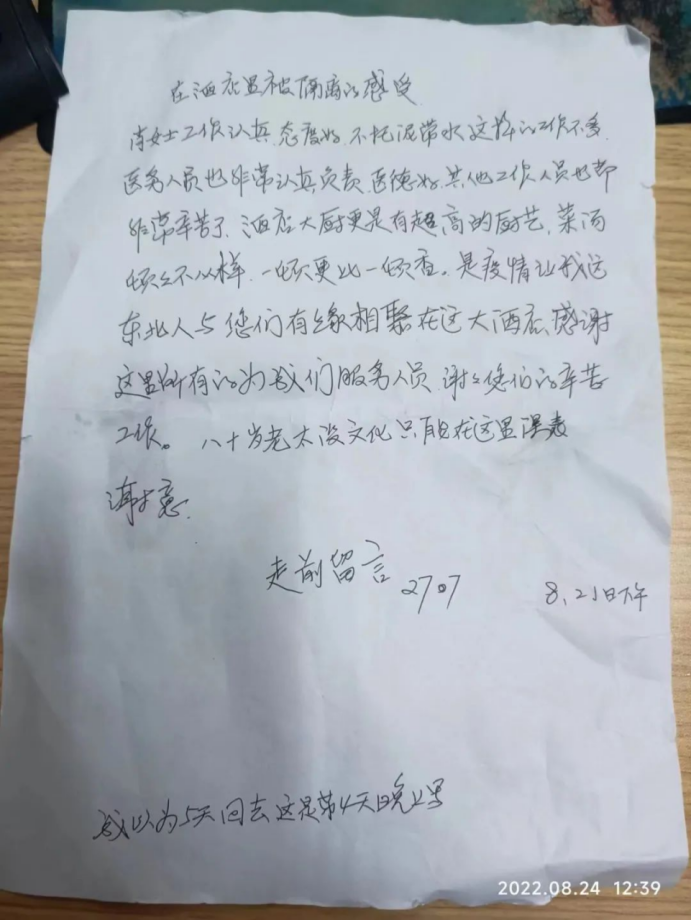 在酒店里被隔离的感受
肖女士工作认真、态度好、不托泥带水这样的工作不多
医务人员也非常认真负责、医德好、其他工作人员也都
非常辛苦了、酒店大厨更是有超高的厨艺、菜汤
顿顿不以样、一顿更比一顿香。是疫情让我这
东北人与您们有缘相聚在这大酒店、感谢
这里所有的为我们服务人员、谢谢您们的辛苦
工作。八十岁老太没文化只能在这里深表
谢意
走前留言 2707 8、21日下午
我以为5天回去这是第4天晚上写
2022.08.24 12:39